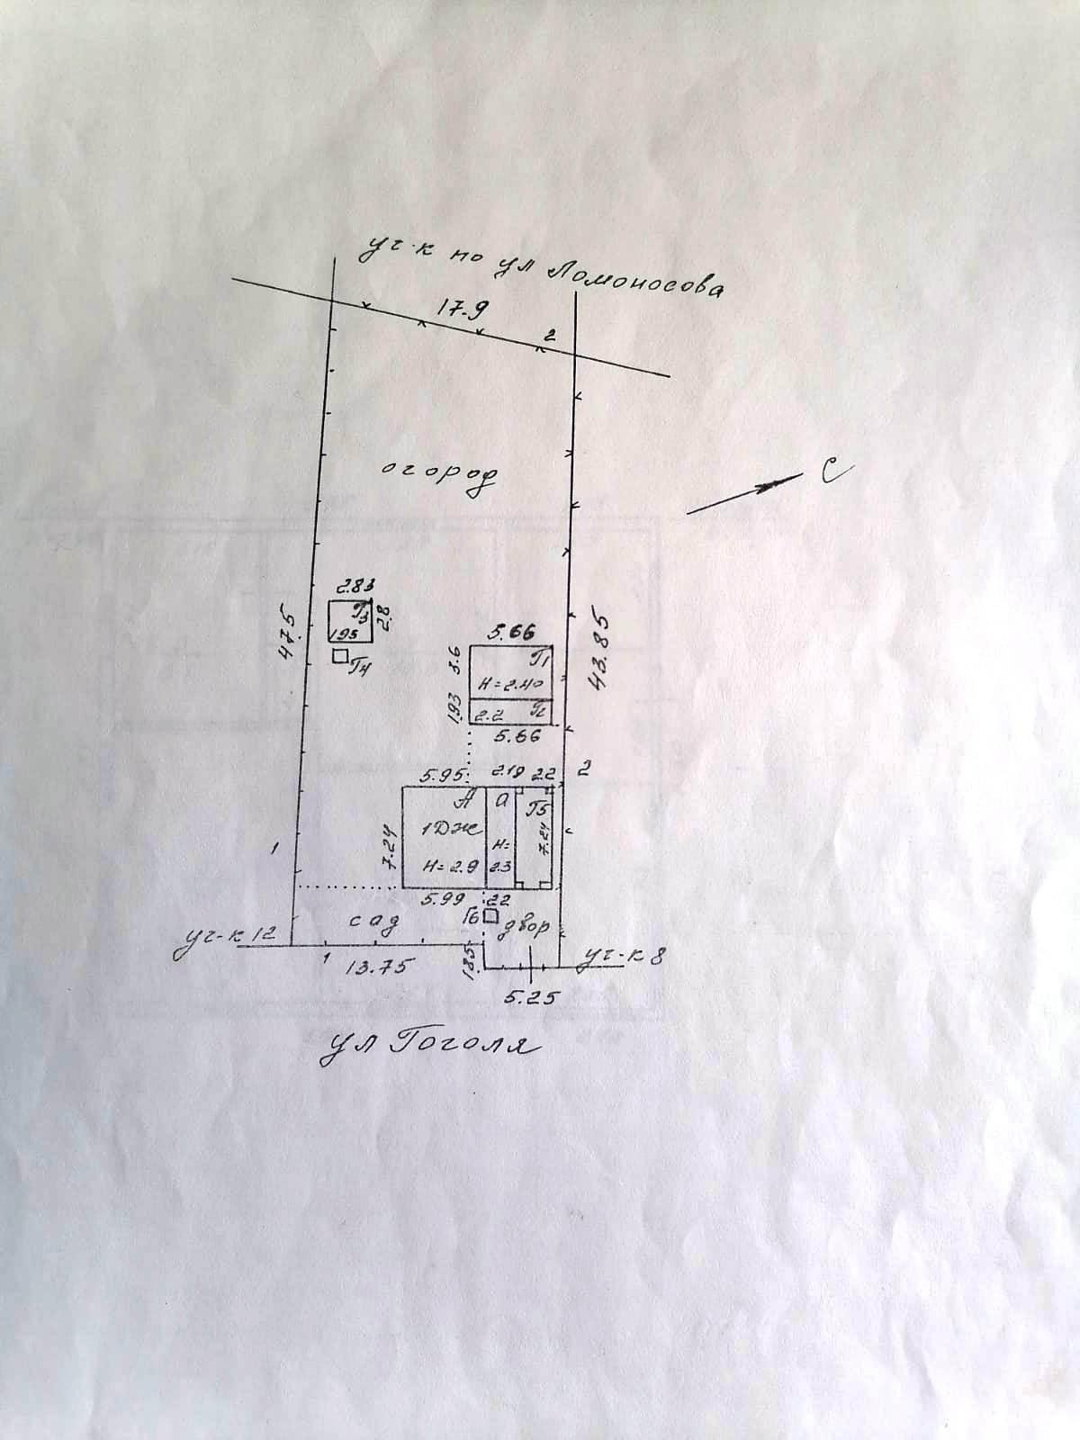 уч-к по ул Ломоносова
17.9
2
огород
С
2.83
Г3
2.8
195
Г4
47.5
43.85
5.66
3.6
Г1
Н=2.40
1.93
2.2
Г2
5.66
2
5.95
2.19
2.2
А
а
Г5
1Дж
7.24
7.24
Н=2.9
Н=
2.3
1
5.99
2.2
Г6
сад
двор
уч-к 12
уч-к 8
1
13.75
1.85
5.25
ул Гоголя